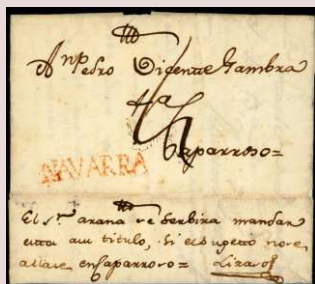 A Dn Pedro Vicente Gambra
Caparroso=
NAVARRA
El Sr. arana se serbira mandar
esta a su titulo, si el sugetto no se
allase en Caparroso=